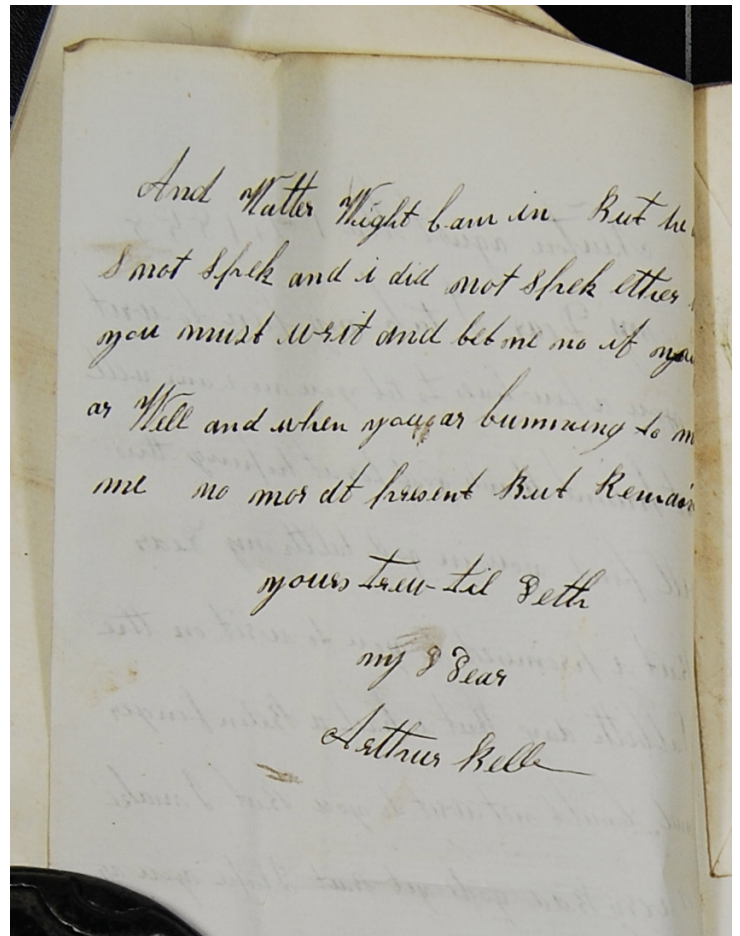 And Watter Wight bam in. But he
d not Spek and i did not Spek ether
you must writ and let me no if you
ar Well and when you ar bumming to
me no mor at present But Remain
yours trew til Deth
my D Dear
Arthur Bell